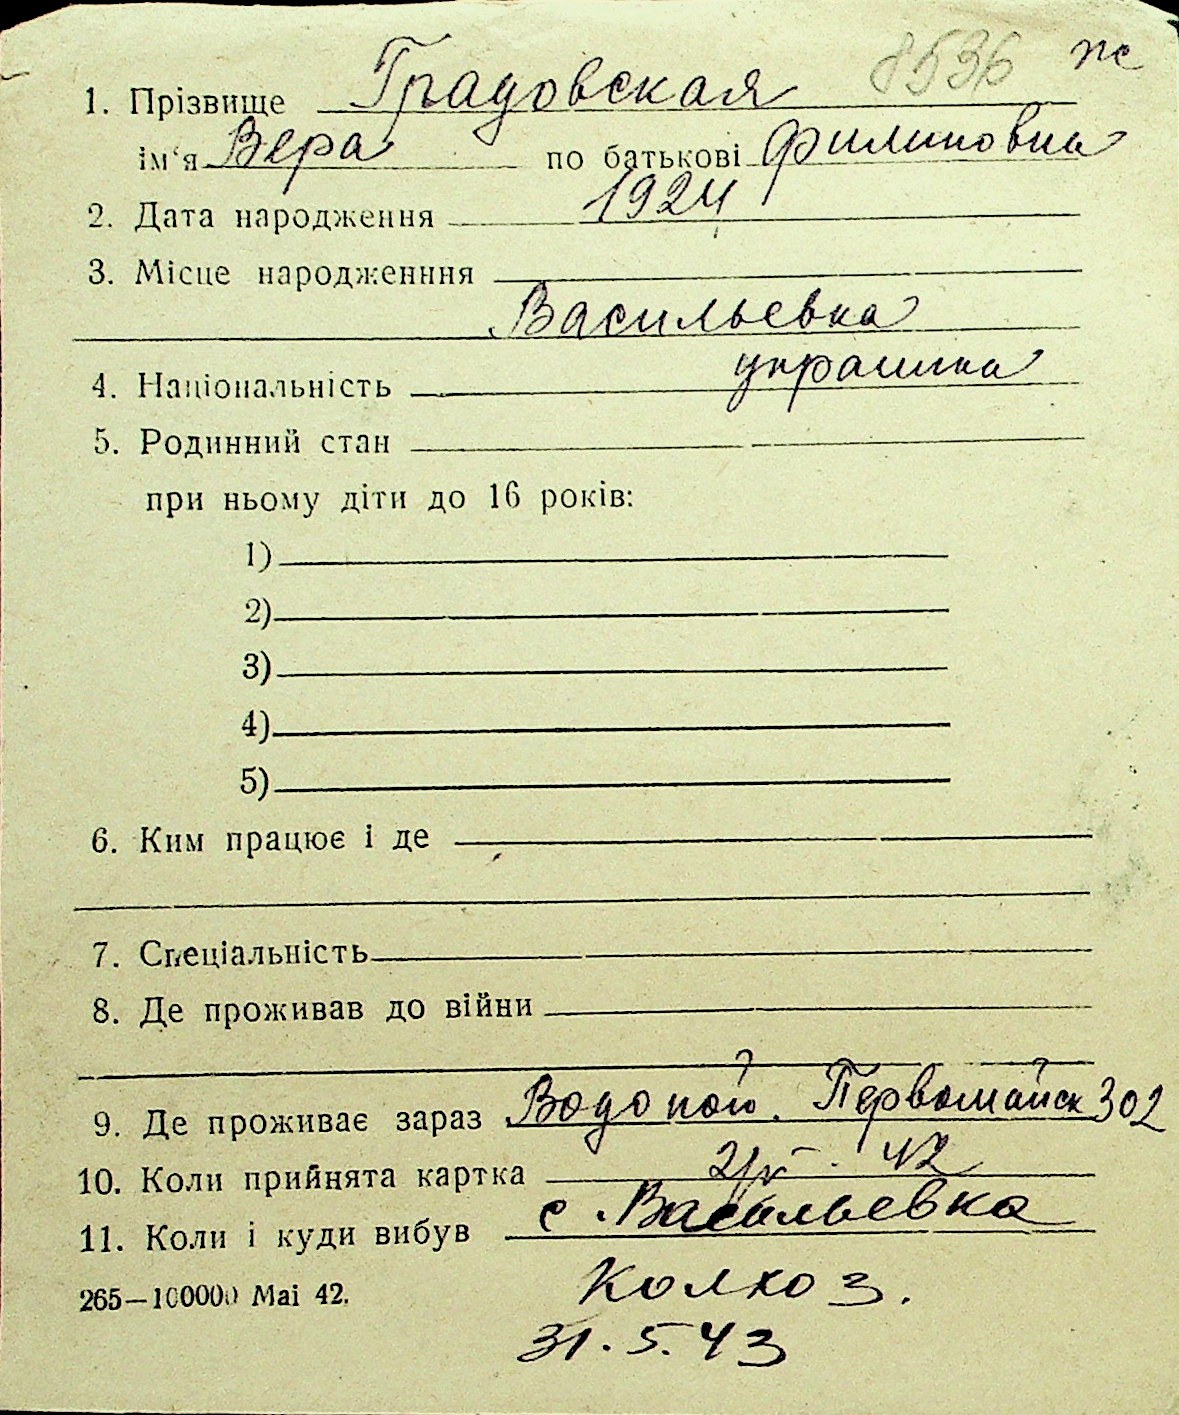 8536 ж
1. Прізвище Градовская
ім‘я Вера по батькові Филиповна
2. Дата народження 1924
3. Місце народженння
Васильевка
4. Національність украинка
5. Родинний стан
при ньому діти до 16 років:
1)
2)
3)
4)
5)
6. Ким працює і де
7. Спеціальність
8. Де проживав до війни
9. Де проживає зараз Водопой. Первомайск 302
10. Коли прийнята картка 42
11. Коли і куди вибув с. Васильевка
265—100000 Маі 42. Колхоз.
31.5.43